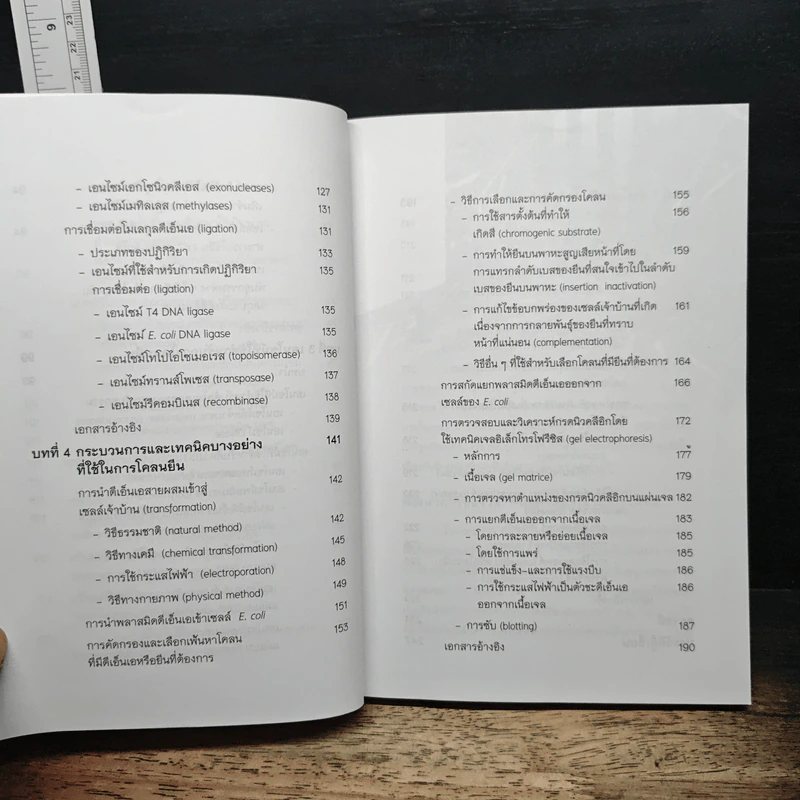 9
23
22
21
– เอนไซม์เอกโซนิวคลีเอส (exonucleases) 127
– เอนไซม์เมทิลเลส (methylases) 131
การเชื่อมต่อโมเลกุลดีเอ็นเอ (ligation) 131
– ประเภทของปฏิกิริยา 133
– เอนไซม์ที่ใช้สำหรับการเกิดปฏิกิริยา 135
การเชื่อมต่อ (ligation)
– เอนไซม์ T4 DNA ligase 135
– เอนไซม์ E. coli DNA ligase 135
– เอนไซม์โทโปไอโซเมอเรส (topoisomerase) 136
– เอนไซม์ทรานส์โพเซส (transposase) 137
– เอนไซม์รีคอมบิเนส (recombinase) 138
เอกสารอ้างอิง 139
บทที่ 4 กระบวนการและเทคนิคบางอย่าง 141
ที่ใช้ในการโคลนยีน
การนำดีเอ็นเอสายผสมเข้าสู่ 142
เซลล์เจ้าบ้าน (transformation)
– วิธีธรรมชาติ (natural method) 142
– วิธีทางเคมี (chemical transformation) 145
– การใช้กระแสไฟฟ้า (electroporation) 148
– วิธีทางกายภาพ (physical method) 149
การนำพลาสมิดดีเอ็นเอเข้าเซลล์ E. coli 151
การคัดกรองและเลือกเฟ้นหาโคลน 153
ที่มีดีเอ็นเอหรือยีนที่ต้องการ
– วิธีการเลือกและการคัดกรองโคลน 155
– การใช้สารตั้งต้นที่ทำให้ 156
เกิดสี (chromogenic substrate)
– การทำให้ยีนบนพาหะสูญเสียหน้าที่โดย 159
การแทรกลำดับเบสของยีนที่สนใจเข้าไปในลำดับ
เบสของยีนบนพาหะ (insertion inactivation)
– การแก้ไขข้อบกพร่องของเซลล์เจ้าบ้านที่เกิด 161
เนื่องจากการกลายพันธุ์ของยีนที่ทราบ
หน้าที่แน่นอน (complementation)
– วิธีอื่น ๆ ที่ใช้สำหรับเลือกโคลนที่มียีนที่ต้องการ 164
การสกัดแยกพลาสมิดดีเอ็นเอออกจาก 166
เซลล์ของ E. coli
การตรวจสอบและวิเคราะห์กรดนิวคลีอิกโดย 172
ใช้เทคนิคเจลอิเล็กโทรโฟรีซิส (gel electrophoresis)
– หลักการ 177
– เนื้อเจล (gel matrice) 179
– การตรวจหาตำแหน่งของกรดนิวคลีอิกบนแผ่นเจล 182
– การแยกดีเอ็นเอออกจากเนื้อเจล 183
– โดยการละลายหรือย่อยเนื้อเจล 185
– โดยใช้การแพร่ 185
– การแช่แข็ง-และการใช้แรงบีบ 186
– การใช้กระแสไฟฟ้าเป็นตัวชะดีเอ็นเอ 186
ออกจากเนื้อเจล
– การซับ (blotting) 187
เอกสารอ้างอิง 190